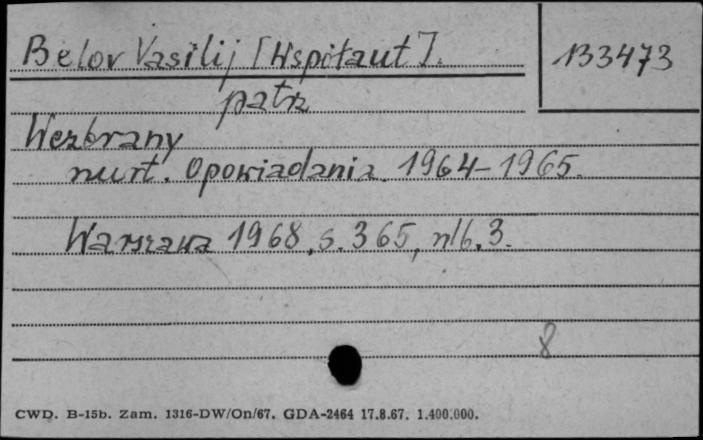 Belov Vasilij [Współaut].
133473
patrz
Wezbrany
nurt. Opowiadania. 1964-1965.
Warszawa 1968, s. 365, nlb. 3.
8
CWD. B-15b. Zam. 1316-DW/On/67. GDA-2464 17.8.67. 1.400.000.